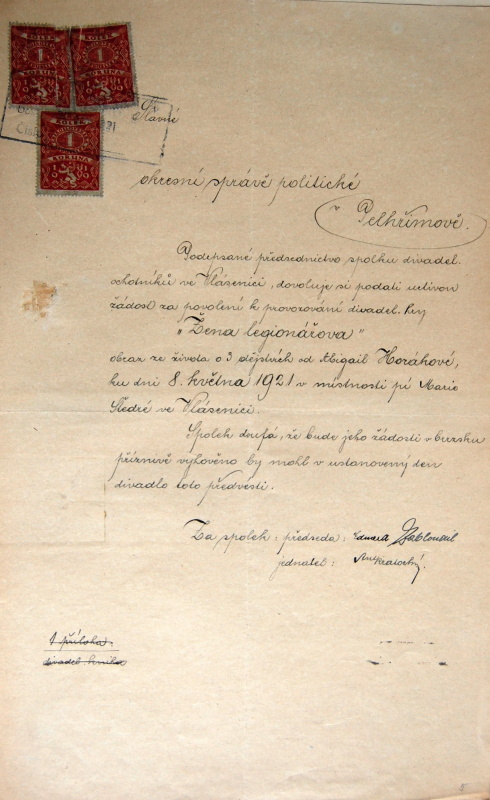 KOLEK
1
KORUNA
KOLEK
1
KORUNA
KOLEK
1
KORUNA
Slavné
okresní správě politické
v Pelhřimově.
Podepsané předsednictvo spolku divadel.
ochotníků ve Vlásenici, dovoluje si podati uctivou
žádost za povolení k provozování divadel. hry
"Žena legionářova"
obraz ze života o 3 dějstvích od Abigail Horákové,
ku dni 8. května 1921 v místnosti pí Marie
ve Vlásenici.
Spolek doufá, že bude jeho žádosti v brzsku
příznivě vyhověno by mohl v ustanovený den
divadlo toto předvésti.
Za spolek: předseda: Eduard
jednatel:
1 příloha.
divadel. kniha
5